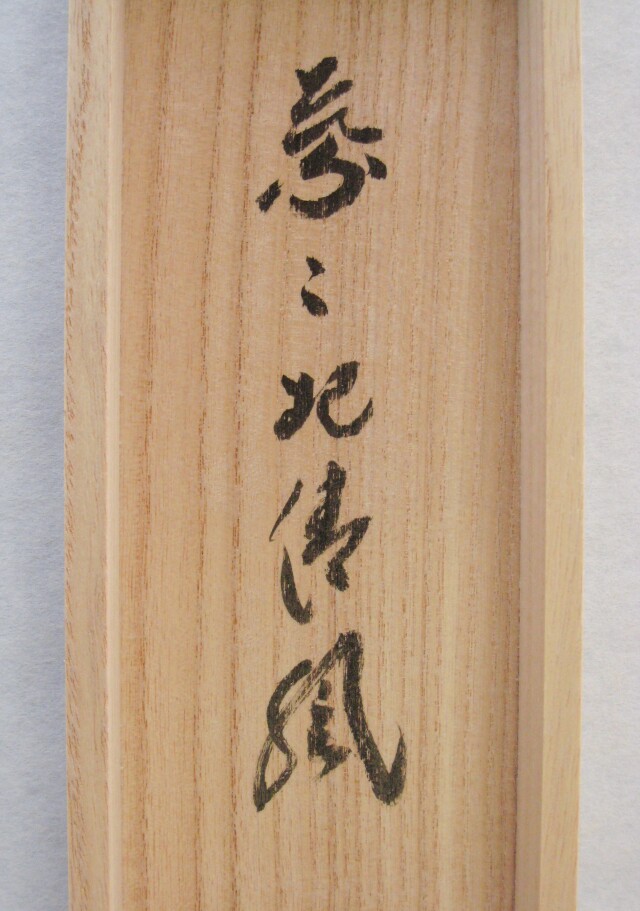 葉々起清風